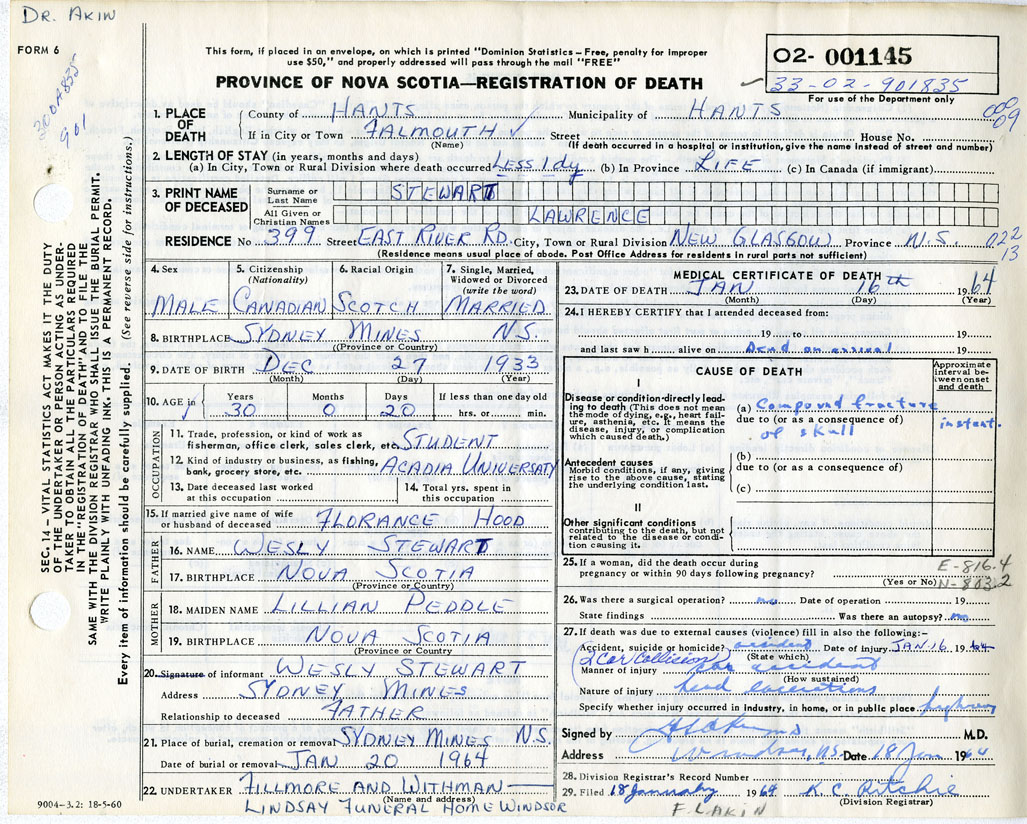 DR. AKIN
FORM 6
300A835
901
This form, if placed in an envelope, on which is printed "Dominion Statistics – Free, penalty for improper
use $50," and properly addressed will pass through the mail "FREE"
PROVINCE OF NOVA SCOTIA—REGISTRATION OF DEATH
02- 001145
33-02-901835
For use of the Department only
1. PLACE OF DEATH
County of HANTS Municipality of HANTS
09
If in City or Town FALMOUTH ✓ Street House No.
(Name) (If death occurred in a hospital or institution, give the name instead of street and number)
2. LENGTH OF STAY (in years, months and days)
(a) In City, Town or Rural Division where death occurred LESS 1 dy (b) In Province LIFE (c) In Canada (if immigrant)
3. PRINT NAME OF DECEASED
Surname or Last Name STEWART
All Given or Christian Names LAWRENCE
RESIDENCE No 399 Street EAST RIVER RD. City, Town or Rural Division NEW GLASGOW Province N.S. 022
13
(Residence means usual place of abode. Post Office Address for residents in rural parts not sufficient)
4. Sex MALE
5. Citizenship (Nationality) CANADIAN
6. Racial Origin SCOTCH
7. Single, Married, Widowed or Divorced (write the word) MARRIED
8. BIRTHPLACE SYDNEY MINES N.S.
(Province or Country)
9. DATE OF BIRTH DEC 27 1933
(Month) (Day) (Year)
10. AGE in Years 30 Months 0 Days 20 If less than one day old hrs. or min.
OCCUPATION
11. Trade, profession, or kind of work as fisherman, office clerk, sales clerk, etc. STUDENT
12. Kind of industry or business, as fishing, bank, grocery store, etc. ACADIA UNIVERSATY
13. Date deceased last worked at this occupation
14. Total yrs. spent in this occupation
15. If married give name of wife or husband of deceased FLORANCE HOOD
FATHER
16. NAME WESLY STEWART
17. BIRTHPLACE NOVA SCOTIA
(Province or Country)
MOTHER
18. MAIDEN NAME LILLIAN PEDDLE
19. BIRTHPLACE NOVA SCOTIA
(Province or Country
20. Signature of informant WESLY STEWART
Address SYDNEY MINES
Relationship to deceased FATHER
21. Place of burial, cremation or removal SYDNEY MINES N.S.
Date of burial or removal JAN 20 1964
22. UNDERTAKER FILLMORE AND WITHMAN
(Name and address)
LINDSAY FUNERAL HOME WINDSOR
9004-3.2: 18-5-60
MEDICAL CERTIFICATE OF DEATH
23. DATE OF DEATH JAN 16th 1964
(Month) (Day) (Year)
24. I HEREBY CERTIFY that I attended deceased from:
19 to 19
and last saw h alive on Dead on arrival 19
CAUSE OF DEATH
Approximate interval between onset and death
I
Disease or condition directly leading to death (This does not mean the mode of dying, e.g., heart failure, asthenia, etc. It means the disease, injury, or complication which caused death.)
(a) Compound fracture
due to (or as a consequence of)
of skull
instant.
Antecedent causes
Morbid conditions, if any, giving rise to the above cause, stating the underlying condition last.
(b)
due to (or as a consequence of)
(c)
II
Other significant conditions
contributing to the death, but not related to the disease or condition causing it.
25. If a woman, did the death occur during pregnancy or within 90 days following pregnancy?
(Yes or No)
E-816.4
N-803.2
26. Was there a surgical operation? no Date of operation 19
State findings Was there an autopsy? no
27. If death was due to external causes (violence) fill in also the following:-
Accident, suicide or homicide? accident Date of injury JAN-16 1964
(State which)
(2 Car Collision)
Manner of injury car accident
(How sustained)
Nature of injury head lacerations
Specify whether injury occurred in industry, in home, or in public place highway
Signed by M.D.
Address Windsor, NS Date 18 Jan 1964
28. Division Registrar's Record Number
29. Filed 18 January 1964 K. C. Ritchie
(Division Registrar)
F. L. AKIN
SEC. 14 – VITAL STATISTICS ACT MAKES IT THE DUTY
OF THE UNDERTAKER OR PERSON ACTING AS UNDER-
TAKER TO OBTAIN ALL THE PARTICULARS REQUIRED
IN THE "REGISTRATION OF DEATH" AND TO FILE THE
SAME WITH THE DIVISION REGISTRAR WHO SHALL ISSUE THE BURIAL PERMIT.
WRITE PLAINLY WITH UNFADING INK. THIS IS A PERMANENT RECORD.
Every item of information should be carefully supplied. (See reverse side for instructions.)